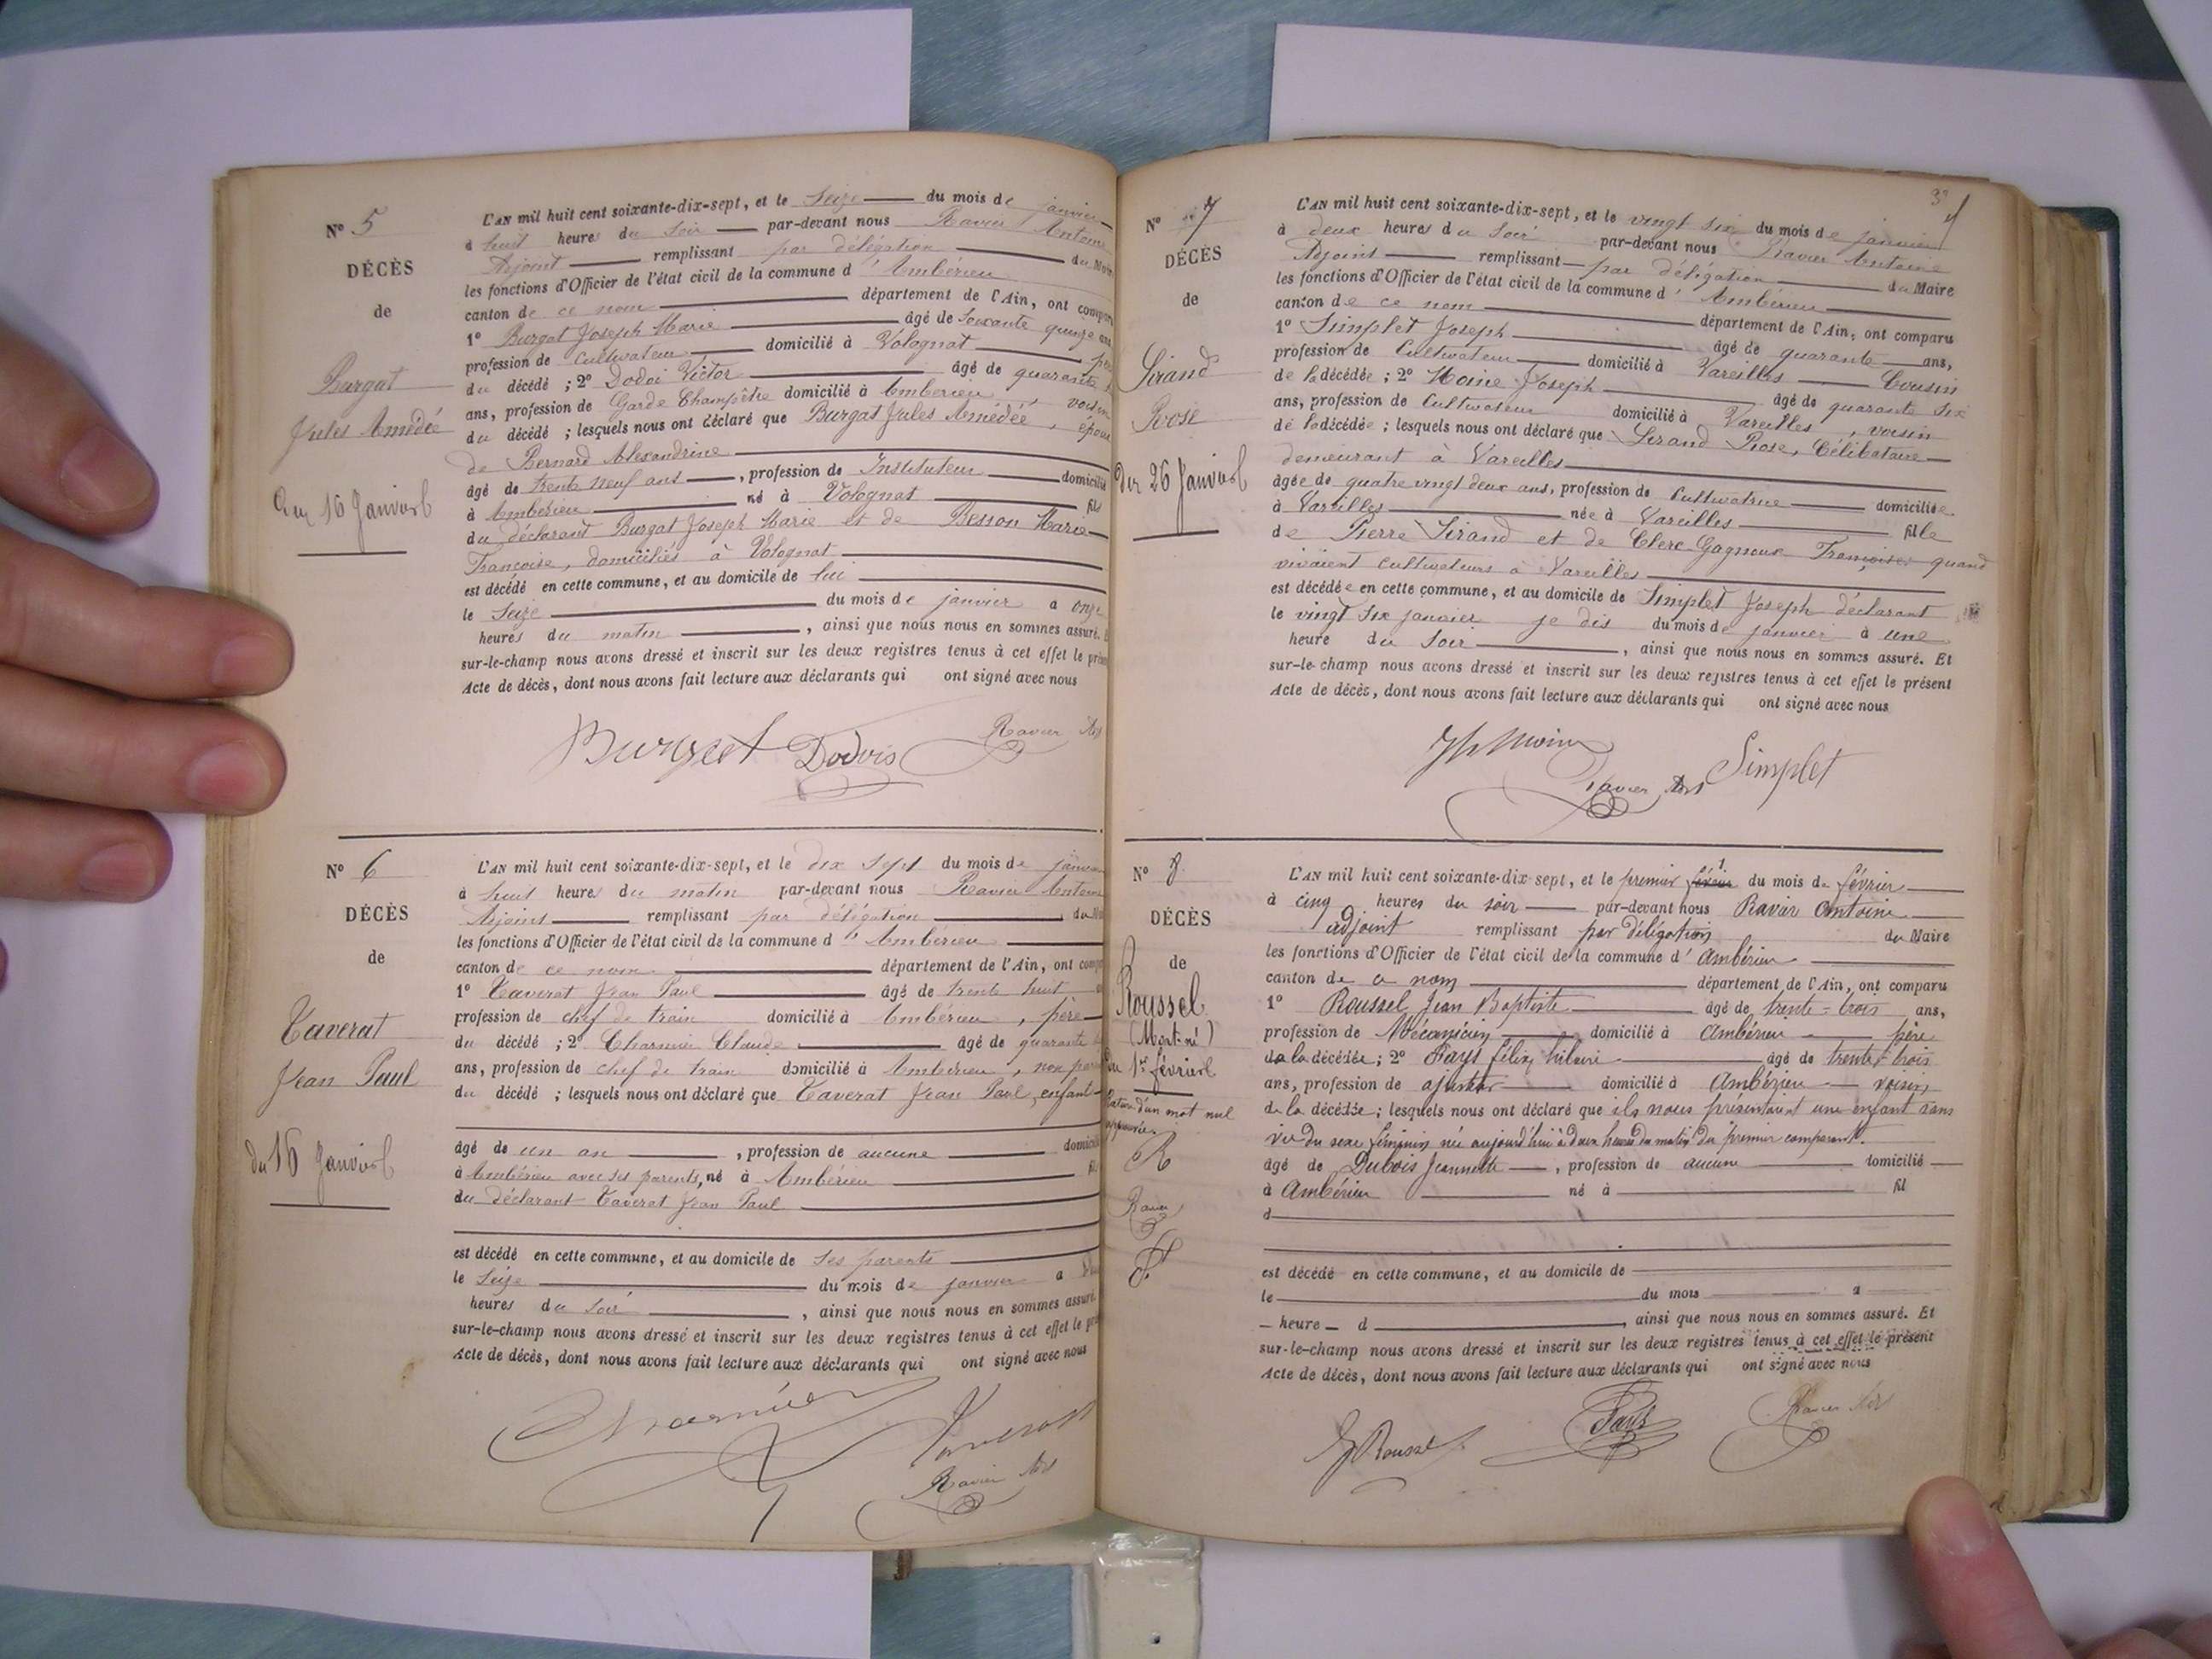 N° 5
DÉCÈS
de
Burgat
Jules Amédé
du 16 Janvier
L'AN mil huit cent soixante-dix-sept, et le Seize du mois de janvier
à huit heures du Soir par-devant nous Ravier Antoine
Adjoint remplissant par délégation du Maire
les fonctions d'Officier de l'état civil de la commune d'Ambérieu
canton de ce nom département de l'Ain, ont comparu
1° Burgat Joseph Marie âgé de Soixante quinze ans
profession de Cultivateur domicilié à Volognat père
du décédé ; 2° Dodoi Victor âgé de quarante
ans, profession de Garde Champêtre domicilié à Ambérieu voisin
du décédé ; lesquels nous ont déclaré que Burgat Jules Amédée, époux
de Bernard Alexandrine
âgé de trente neuf ans, profession de Instituteur domicilié
à Ambérieu né à Volognat fils
du déclarant Burgat Joseph Marie et de Besson Marie
Françoise, domiciliés à Volognat
est décédé en cette commune, et au domicile de lui
le Seize du mois de janvier à onze
heures du matin, ainsi que nous nous en sommes assuré.
sur-le-champ nous avons dressé et inscrit sur les deux registres tenus à cet effet le présent
Acte de décès, dont nous avons fait lecture aux déclarants qui ont signé avec nous
Burgat Dodois Ravier Adj
N° 6
DÉCÈS
de
Taverat
Jean Paul
du 16 Janvier
L'AN mil huit cent soixante-dix-sept, et le dix Sept du mois de janvier
à huit heures du matin par-devant nous Ravier Antoine
Adjoint remplissant par délégation du
les fonctions d'Officier de l'état civil de la commune d'Ambérieu
canton de ce nom département de l'Ain, ont comparu
1° Taverat Jean Paul âgé de trente huit
profession de chef de train domicilié à Ambérieu, père
du décédé ; 2° Charnier Claude âgé de quarante
ans, profession de chef de train domicilié à Ambérieu, non parent
du décédé ; lesquels nous ont déclaré que Taverat Jean Paul, enfant
âgé de un an, profession de aucune domicilié
à Ambérieu avec ses parents, né à Ambérieu
du déclarant Taverat Jean Paul
est décédé en cette commune, et au domicile de ses parents
le Seize du mois de janvier à
heures du Soir, ainsi que nous nous en sommes assuré.
sur-le-champ nous avons dressé et inscrit sur les deux registres tenus à cet effet le
Acte de décès, dont nous avons fait lecture aux déclarants qui ont signé avec nous
Charnier Taverat
Ravier Adj
N° 7
DÉCÈS
de
Sirand
Rose
26 Janvier
L'AN mil huit cent soixante-dix-sept, et le vingt six du mois de janvier
à deux heures du Soir par-devant nous Ravier Antoine
Adjoint remplissant par délégation du Maire
les fonctions d'Officier de l'état civil de la commune d'Ambérieu
canton de ce nom département de l'Ain, ont comparu
1° Simplet Joseph âgé de quarante ans,
profession de Cultivateur domicilié à Vareilles Cousin
de la décédée ; 2° Moine Joseph âgé de quarante six
ans, profession de Cultivateur domicilié à Vareilles, voisin
de la décédée ; lesquels nous ont déclaré que Sirand Rose, Célibataire
demeurant à Vareilles
âgée de quatre vingt deux ans, profession de Cultivatrice domiciliée
à Vareilles née à Vareilles fille
de Pierre Sirand et de Clerc-Gagneux Françoise quand
vivaient cultivateurs à Vareilles
est décédée en cette commune, et au domicile de Simplet Joseph déclarant
le vingt six janvier je dis du mois de janvier à une
heure du Soir, ainsi que nous nous en sommes assuré. Et
sur-le-champ nous avons dressé et inscrit sur les deux registres tenus à cet effet le présent
Acte de décès, dont nous avons fait lecture aux déclarants qui ont signé avec nous
Jh Moine Ravier Adj Simplet
N° 8
DÉCÈS
de
Roussel
(Mort-né)
du 1er février
Rature d'un mot nul
approuvée.
R
Ravier
L'AN mil huit cent soixante-dix-sept, et le premier du mois de février
à cinq heures du soir par-devant nous Ravier Antoine
adjoint remplissant par délégation du Maire
les fonctions d'Officier de l'état civil de la commune d'Ambérieu
canton de ce nom département de l'Ain, ont comparu
1° Roussel Jean Baptiste âgé de trente-trois ans,
profession de Mécanicien domicilié à Ambérieu père
de la décédée ; 2° Pays félix hilaire âgé de trente-trois
ans, profession de ajusteur domicilié à Ambérieu voisin
de la décédée ; lesquels nous ont déclaré que ils nous présentaient une enfant sans
vie du sexe féminin née aujourd'hui à deux heures du matin du premier comparant.
âgé de Dubois Jeannette, profession de aucune domicilié
à Ambérieu né à fil
d
est décédé en cette commune, et au domicile de
le du mois à
heure d, ainsi que nous nous en sommes assuré. Et
sur-le-champ nous avons dressé et inscrit sur les deux registres tenus à cet effet le présent
Acte de décès, dont nous avons fait lecture aux déclarants qui ont signé avec nous
Roussel Pays Ravier Adj